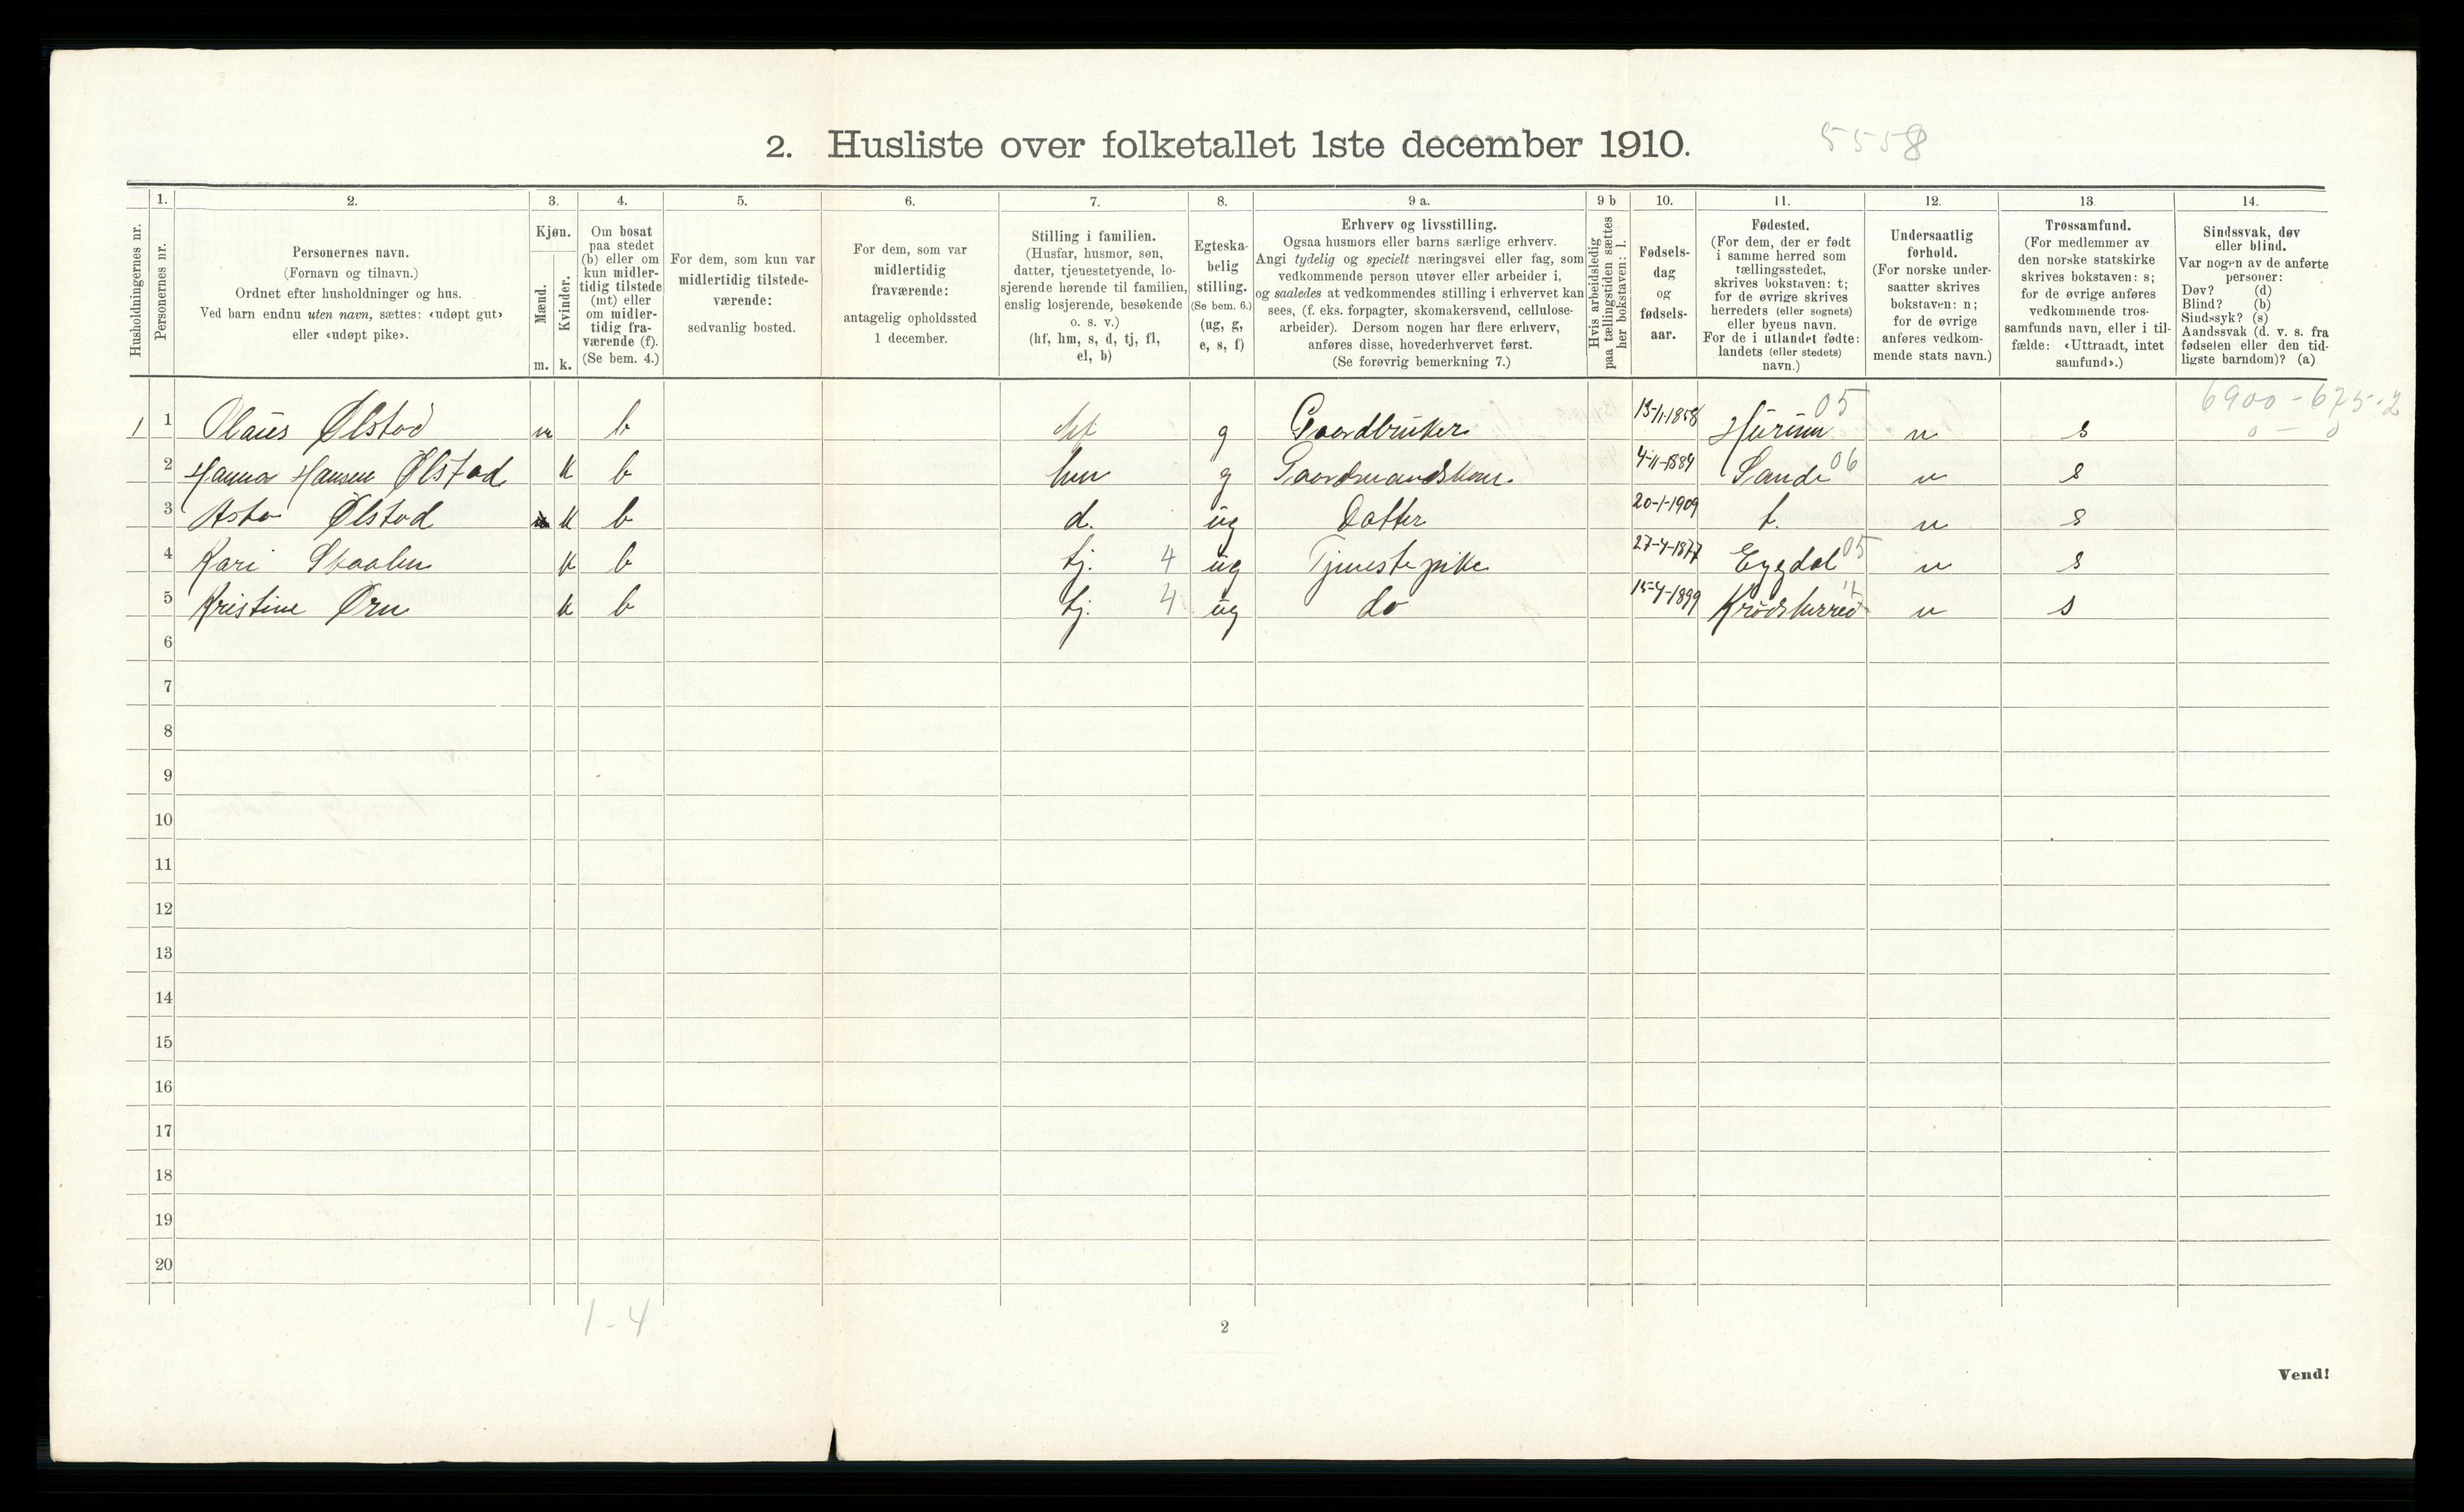 2. Husliste over folketallet 1ste december 1910. 5558
Husholdningernes nr.
1. Personernes nr.
2. Personernes navn.
(Fornavn og tilnavn.)
Ordnet efter husholdninger og hus.
Ved barn endnu uten navn, sættes: «udøpt gut»
eller «udøpt pike».
3. Kjøn.
Mænd. Kvinder.
m. k.
4. Om bosat
paa stedet
(b) eller om
kun midler-
tidig tilstede
(mt) eller
om midler-
tidig fra-
værende (f).
(Se bem. 4.)
5. For dem, som kun var
midlertidig tilstede-
værende:
sedvanlig bosted.
6. For dem, som var
midlertidig
fraværende:
antagelig opholdssted
1 december.
7. Stilling i familien.
(Husfar, husmor, søn,
datter, tjenestetyende, lo-
sjerende hørende til familien,
enslig losjerende, besøkende
o. s. v.)
(hf, hm, s, d, tj, fl,
el, b)
8. Egteska-
belig
stilling.
(Se bem. 6.)
(ug, g,
e, s, f)
9 a. Erhverv og livsstilling.
Ogsaa husmors eller barns særlige erhverv.
Angi tydelig og specielt næringsvei eller fag, som
vedkommende person utøver eller arbeider i,
og saaledes at vedkommendes stilling i erhvervet kan
sees, (f. eks. forpagter, skomakersvend, cellulose-
arbeider). Dersom nogen har flere erhverv,
anføres disse, hovederhvervet først.
(Se forøvrig bemerkning 7.)
9 b Hvis arbeidsledig
paa tællingstiden sættes
her bokstaven: l.
10. Fødsels-
dag
og
fødsels-
aar.
11. Fødested.
(For dem, der er født
i samme herred som
tællingsstedet,
skrives bokstaven: t;
for de øvrige skrives
herredets (eller sognets)
eller byens navn.
For de i utlandet fødte:
landets (eller stedets)
navn.)
12. Undersaatlig
forhold.
(For norske under-
saatter skrives
bokstaven: n;
for de øvrige
anføres vedkom-
mende stats navn.)
13. Trossamfund.
(For medlemmer av
den norske statskirke
skrives bokstaven: s;
for de øvrige anføres
vedkommende tros-
samfunds navn, eller i til-
fælde: «Uttraadt, intet
samfund».)
14. Sindssvak, døv
eller blind.
Var nogen av de anførte
personer:
Døv? (d)
Blind? (b)
Sindssyk? (s)
Aandssvak (d. v. s. fra
fødselen eller den tid-
ligste barndom)? (a)
6900-675-2
0 - 0
1 1 Olaus Ølstad m b hf g Gaardbruker 13-11-1858 Hurum 05 n s
2 Hanna Hansen Ølstad k b hm g Gaardmandskone. 4-11-1884 Sande 06 n s
3 Asta Ølstad k b d. ug Datter 20-1-1909 t. n s
4 Kari Skaalen k b tj. 4 ug Tjenestepike 27-4-1877 Eggdal 05 n s
5 Kristine Ørn k b tj. 4 ug do 15-4-1899 Krødsherred n s
6
7
8
9
10
11
12
13
14
15
16
17
18
19
20
1-4
2
Vend!